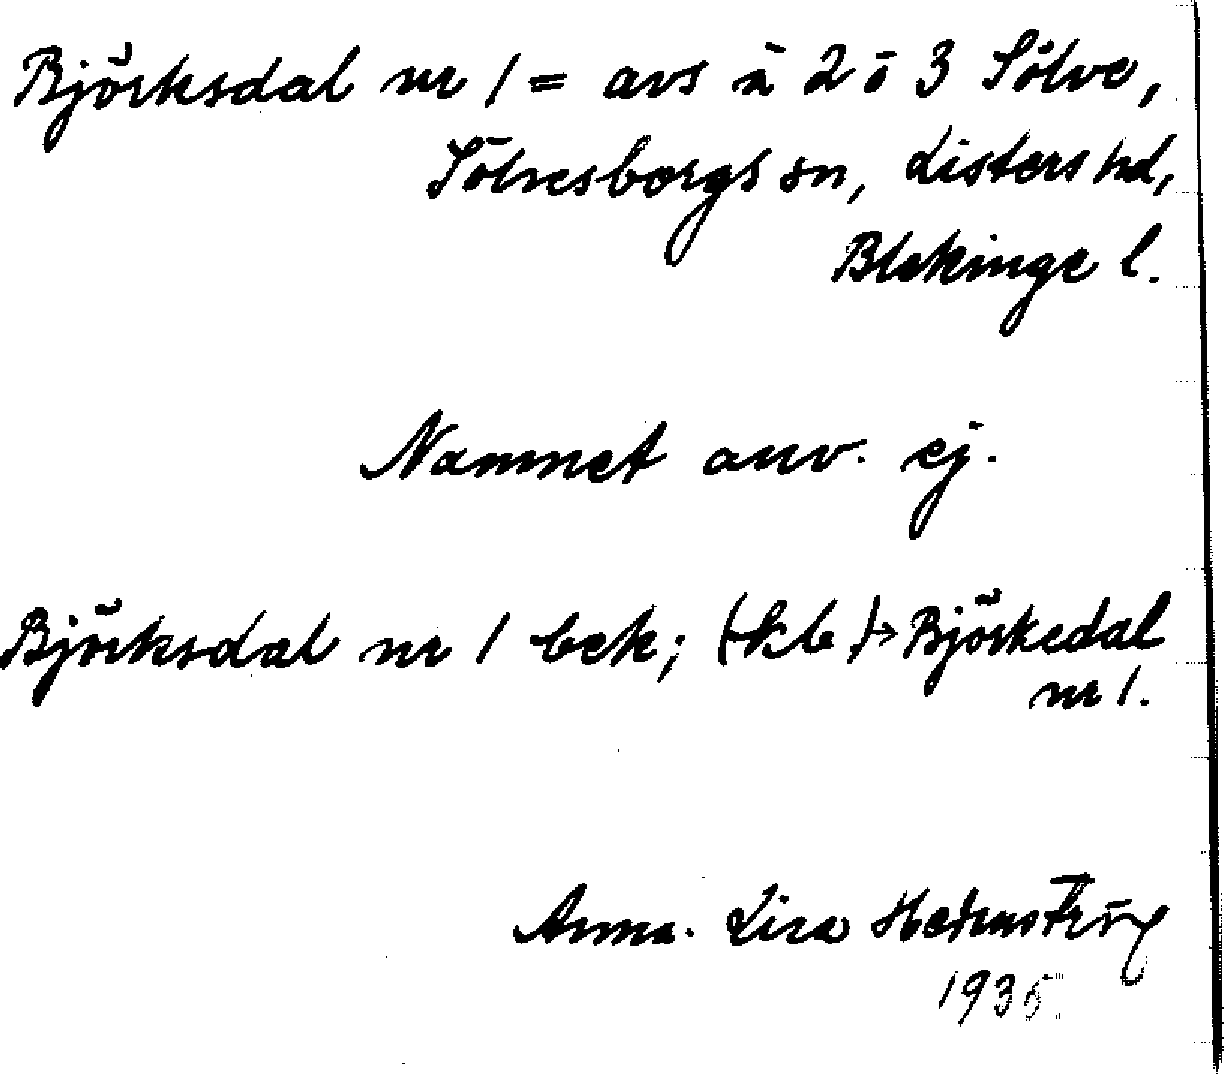 Björksdal nr 1 = avs å 2 o 3 Sölve,
Sölvesborgs sn, Listers hd,
Blekinge l.
Namnet anv. ej.
Björksdal nr 1 bek; (kb) → Björkedal
nr 1.
Anna-Lisa
1935